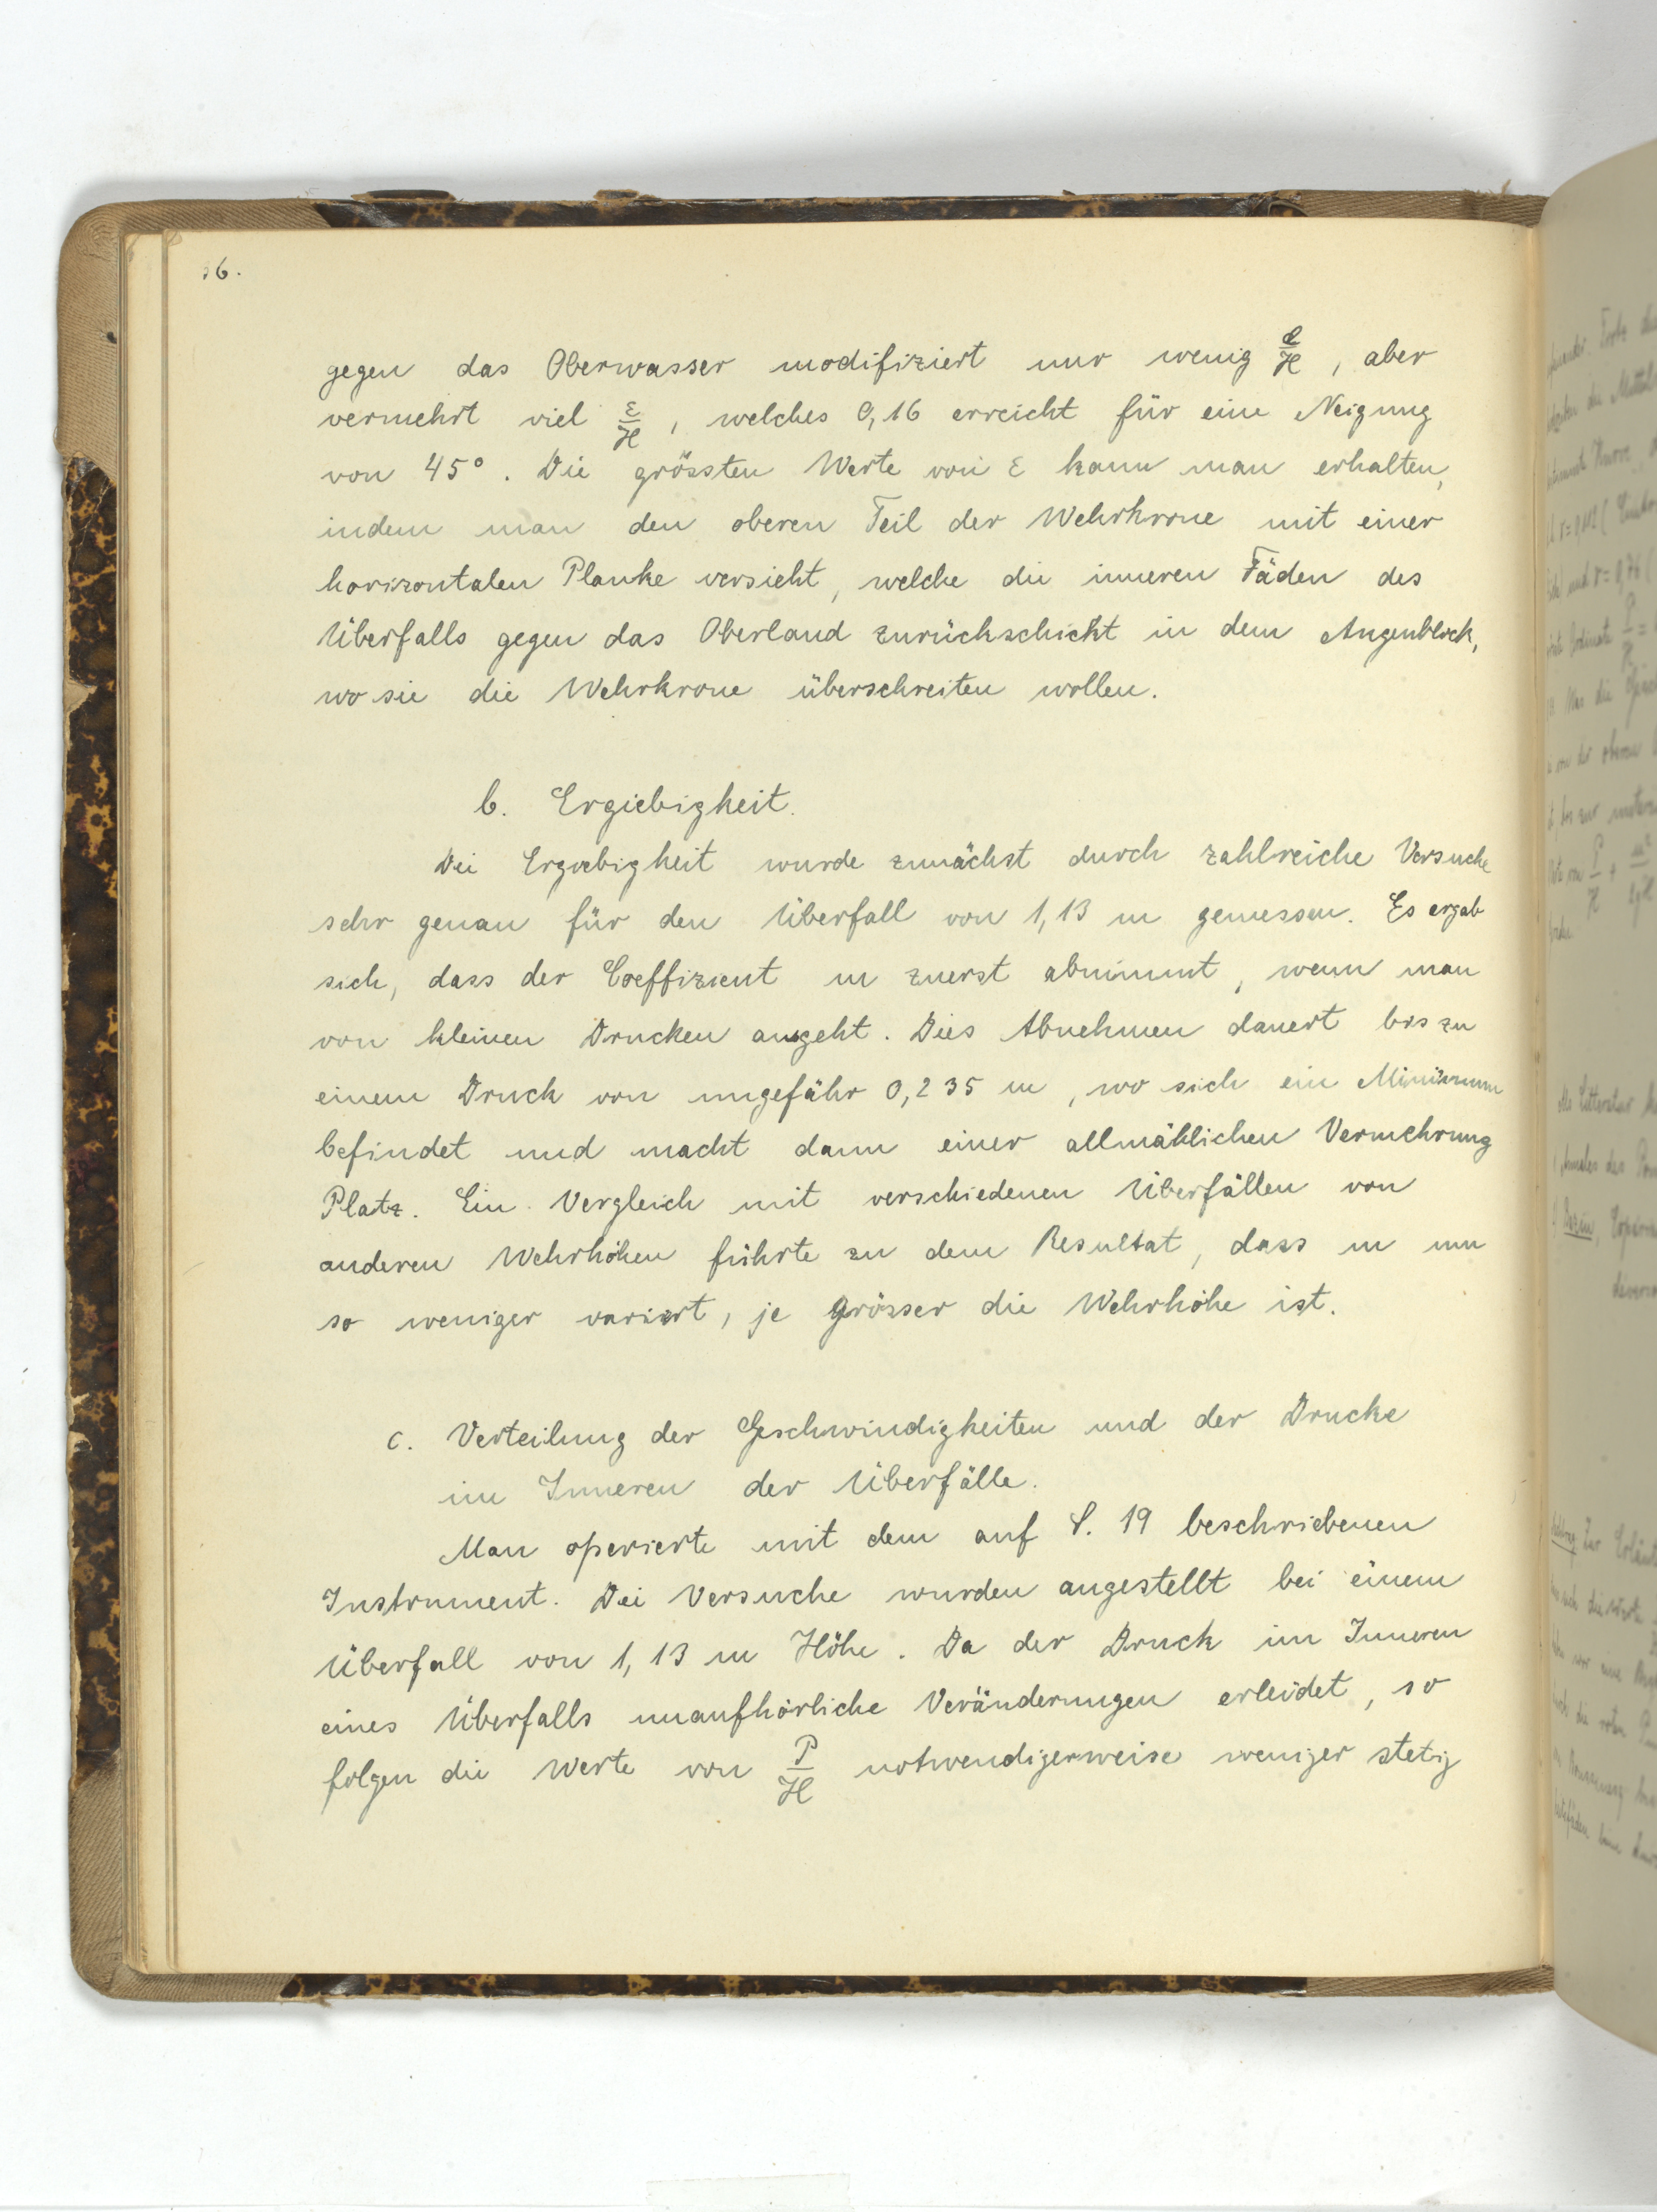 gegen das Oberwasser modifiziert nur wenig e/H, aber
vermehrt viel ε/H, welches 0,16 erreicht für eine Neigung
von 45°. Die grössten Werte von ε kann man erhalten,
indem man den oberen Teil der Wehrkrone mit einer
horizontalen Planke versieht, welche die inneren Fäden des
Überfalls gegen das Oberland zurückschickt in dem Augenblick,
wo sie die Wehrkrone überschreiten wollen.
b. Ergiebigkeit.
Die Ergiebigkeit wurde zunächst durch zahlreiche Versuche
sehr genau für den Überfall von 1,13 m gemessen. Es ergab
sich, dass der Coeffizient m zuerst abnimmt, wenn man
von kleinen Drucken ausgeht. Dies Abnehmen dauert bis zu
einem Druck von ungefähr 0,235 m, wo sich ein Minimum
befindet und macht dann einer allmählichen Vermehrung
Platz. Ein Vergleich mit verschiedenen Überfällen von
anderen Wehrhöhen führte zu dem Resultat, dass m um
so weniger variiert, je grösser die Wehrhöhe ist.
c. Verteilung der Geschwindigkeiten und der Drucke
im Inneren der Überfälle.
Man operierte mit dem auf S. 19 beschriebenen
Instrument. Die Versuche wurden angestellt bei einem
Überfall von 1,13 m Höhe. Da der Druck im Inneren
eines Überfalls unaufhörliche Veränderungen erleidet, so
folgen die Werte von P/H notwendigerweise weniger stetig